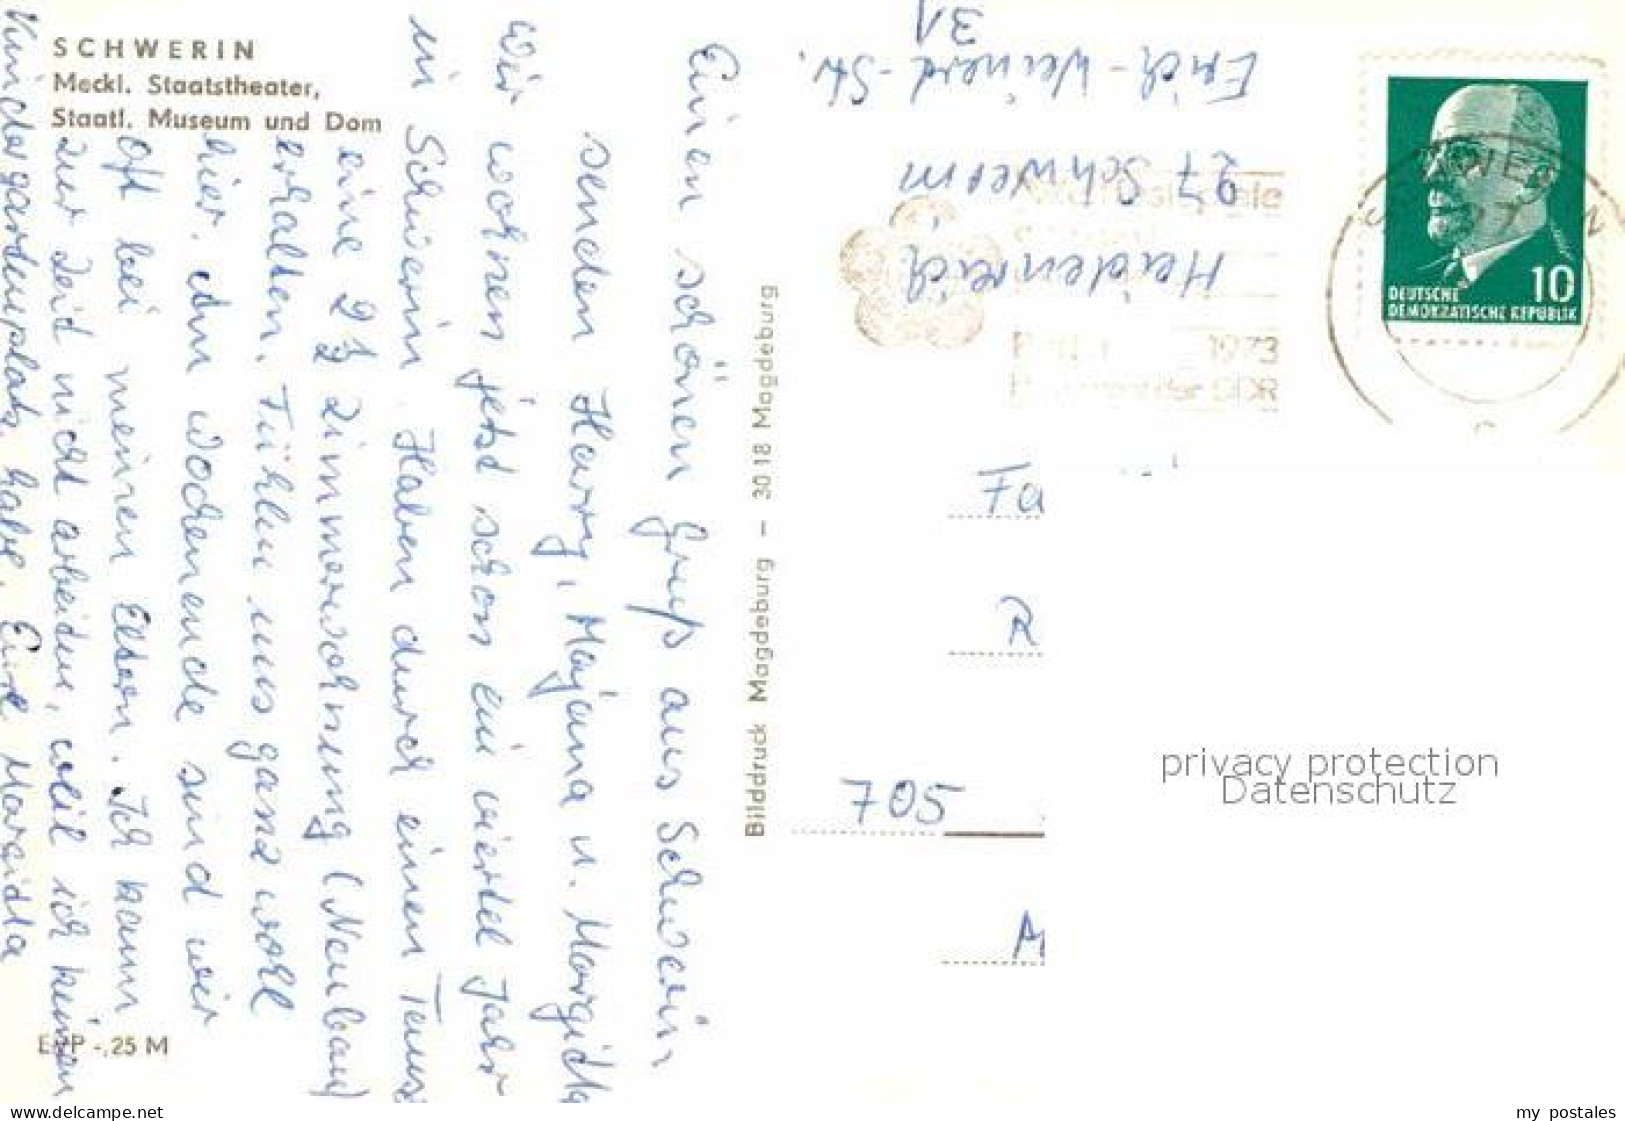 SCHWERIN
Meckl. Staatstheater,
Staatl. Museum und Dom
Einen schönen Gruß aus Schwerin
senden Harry, Majana u. Margidla
Wir wohnen jetzt schon ein viertel Jahr
in Schwerin. Haben durch einen Tausch
eine 2½ Zimmerwohnung (Neubau)
erhalten. Fühlen uns ganz wohl
hier. Am Wochenende sind wir
oft bei meinen Eltern. Ich kann
zur Zeit nicht arbeiten, weil ich keinen
Kindergartenplatz habe. Eure
EVP -,25 M
Bilddruck Magdeburg – 30 18 Magdeburg
Heidenreich
27 Schwerin
Erich-Weinert-Str.
31
1973
DDR
10
DEUTSCHE
DEMOKRATISCHE REPUBLIK
Fa
R
705
A
privacy protection
Datenschutz
www.delcampe.net
my_postales